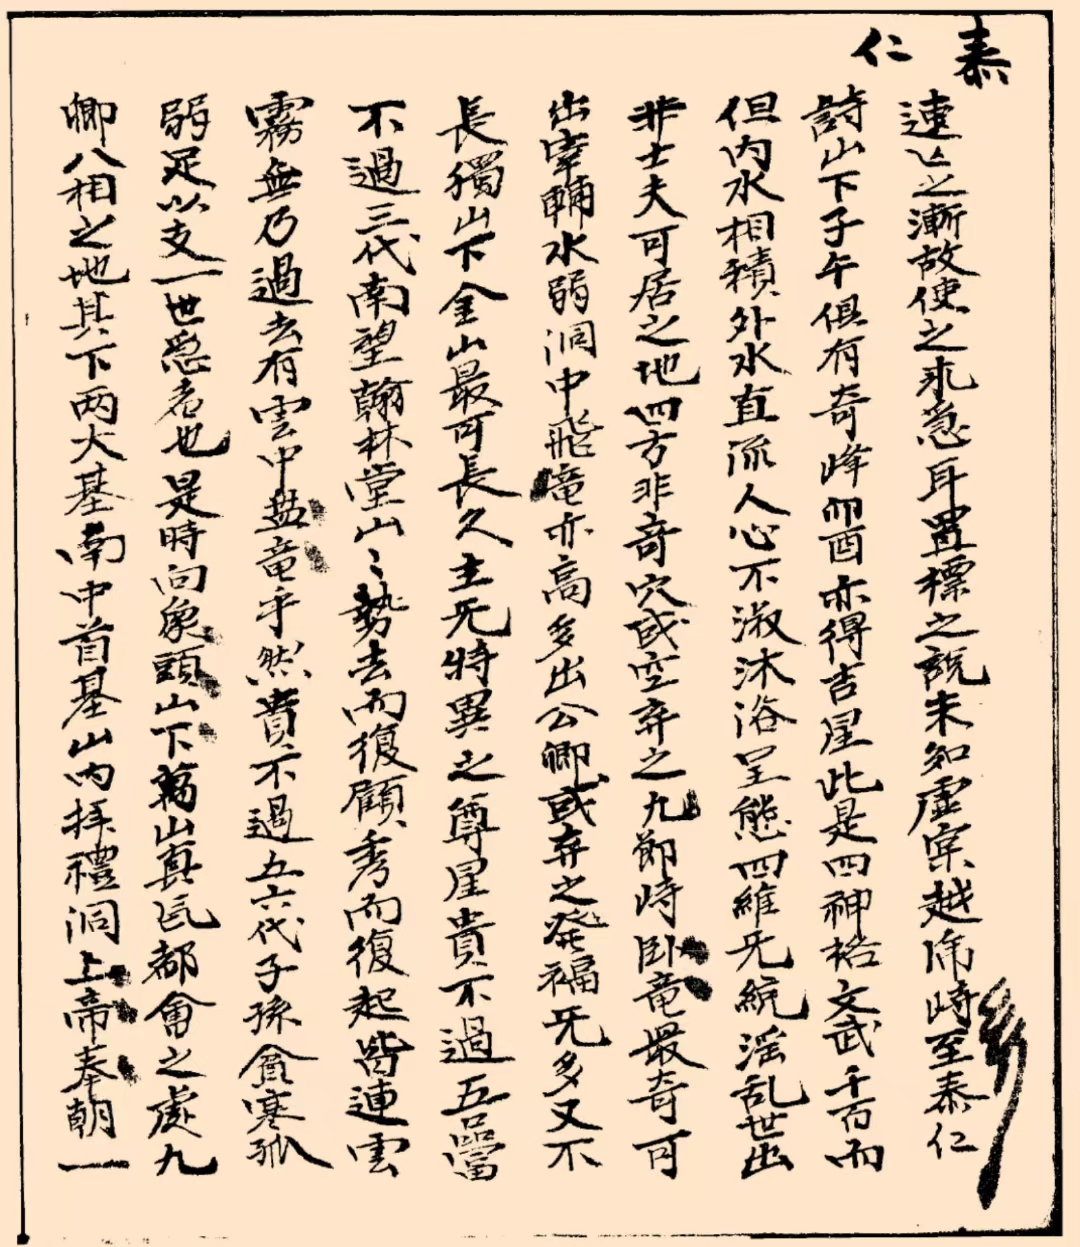 泰仁
連亡之漸故使之永急耳置標之說未知虛宲越席時至泰仁
詩山下子午俱有奇峰卯酉亦得吉星此是四神格文武千百而
但内水相積外水直流人心不淑沐浴呈態四維旡統淫乱世出
非士夫可居之地四方非奇穴或空弃之九節峙卧竜最奇可
出宰輔水弱洞中飛竜亦高多出公卿或弃之発福旡多又不
長獨山下金山最可長久主旡特異之尊星貴不過五品當
不過三代南望翰林堂山〻勢去而復顧秀而復起皆連雲
霧無乃過去有雲中盘竜乎然貴不過五六代子孫貧寒孤
弱足以支一世急者也是時向象頭山下萬山真氣都會之處九
卿八相之地其下两大基南中首基山内拝禮洞上帝奉朝一